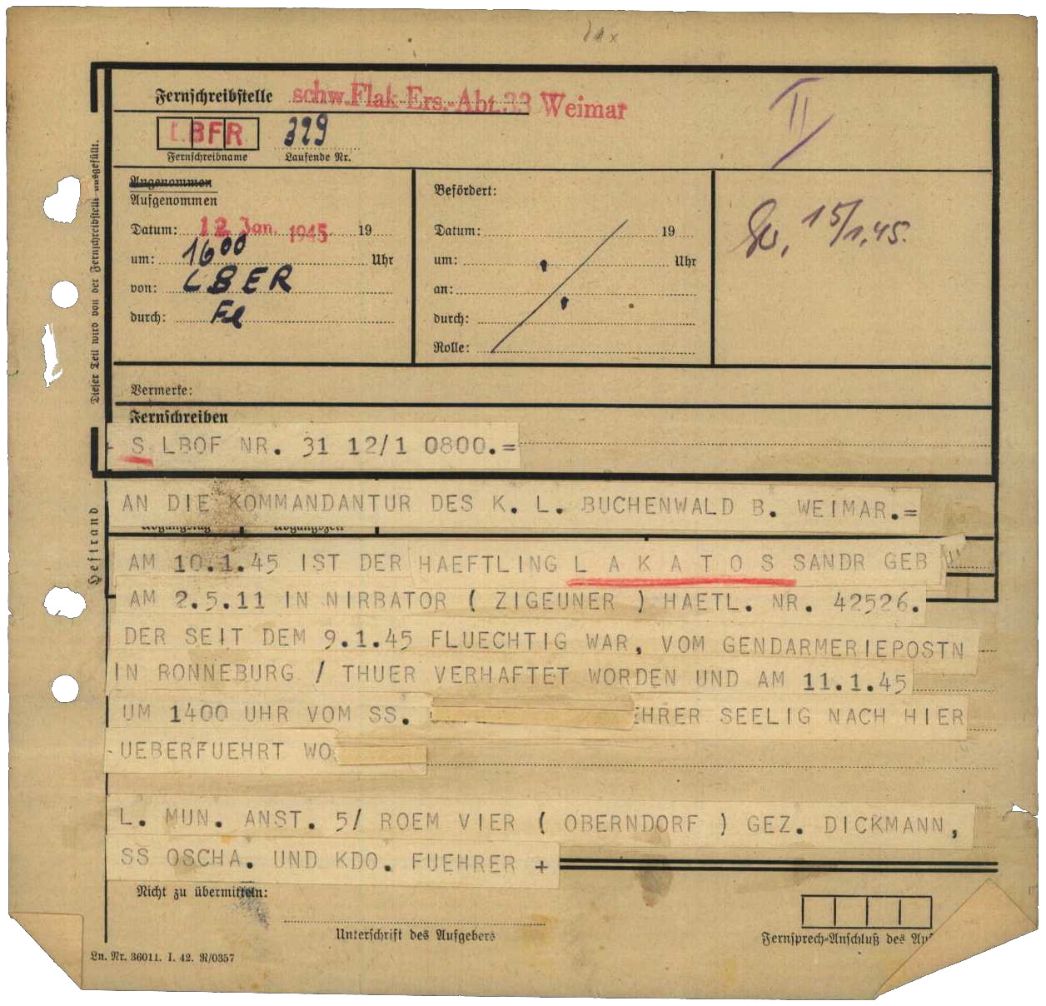 Fernschreibstelle schw.Flak-Ers.-Abt.33 Weimar
LBFR 329
Fernschreibname Laufende Nr.
II
Angenommen
Aufgenommen
Datum: 12. Jan. 1945 19
um: 16⁰⁰ Uhr
von: LBER
durch:
Befördert:
Datum: 19
um: Uhr
an:
durch:
Rolle:
15/1.45.
Dieser Teil wird von der Fernschreibstelle ausgefüllt.
Vermerke:
Fernschreiben
+ S LBOF NR. 31 12/1 0800.=
Heftrand
AN DIE KOMMANDANTUR DES K. L. BUCHENWALD B. WEIMAR.=
AM 10.1.45 IST DER HAEFTLING L A K A T O S SANDR GEB
AM 2.5.11 IN NIRBATOR ( ZIGEUNER ) HAETL. NR. 42526.
DER SEIT DEM 9.1.45 FLUECHTIG WAR, VOM GENDARMERIEPOSTN
IN RONNEBURG / THUER VERHAFTET WORDEN UND AM 11.1.45
UM 1400 UHR VOM SS. EHRER SEELIG NACH HIER
UEBERFUEHRT WO
L. MUN. ANST. 5/ ROEM VIER ( OBERNDORF ) GEZ. DICKMANN,
SS OSCHA. UND KDO. FUEHRER +
Nicht zu übermitteln:
Unterschrift des Aufgebers
Fernsprech-Anschluß des
Ln. Nr. 36011. I. 42. R/0357